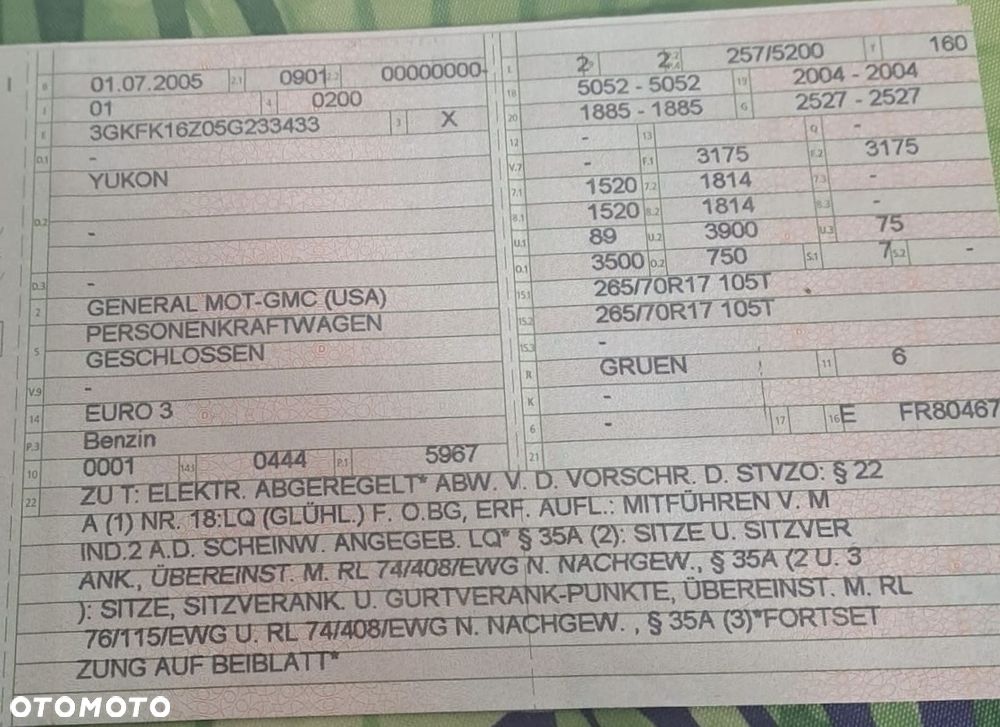 B 01.07.2005 2.1 0901 2.2 00000000-
J 01 4 0200
E 3GKFK16Z05G233433 3 X
D.1 -
YUKON
D.2
-
D.3 -
2 GENERAL MOT-GMC (USA)
PERSONENKRAFTWAGEN
5 GESCHLOSSEN
V.9 -
14 EURO 3
P.3 Benzin
10 0001 14.1 0444 P.1 5967
L 2 2 257/5200 T 160
18 5052 - 5052 19 2004 - 2004
20 1885 - 1885 G 2527 - 2527
12 - 13 Q -
V.7 - F.1 3175 F.2 3175
7.1 1520 7.2 1814 7.3 -
8.1 1520 8.2 1814 8.3 -
U.1 89 U.2 3900 U.3 75
O.1 3500 O.2 750 S.1 7 S.2 -
15.1 265/70R17 105T
15.2 265/70R17 105T
15.3 -
R GRUEN 11 6
K -
6 - 17 16 E FR80467
21
22 ZU T: ELEKTR. ABGEREGELT* ABW. V. D. VORSCHR. D. STVZO: § 22
A (1) NR. 18:LQ (GLÜHL.) F. O.BG, ERF. AUFL.: MITFÜHREN V. M
IND.2 A.D. SCHEINW. ANGEGEB. LQ* § 35A (2): SITZE U. SITZVER
ANK., ÜBEREINST. M. RL 74/408/EWG N. NACHGEW., § 35A (2 U. 3
): SITZE, SITZVERANK. U. GURTVERANK-PUNKTE, ÜBEREINST. M. RL
76/115/EWG U. RL 74/408/EWG N. NACHGEW. , § 35A (3)*FORTSET
ZUNG AUF BEIBLATT*
OTOMOTO